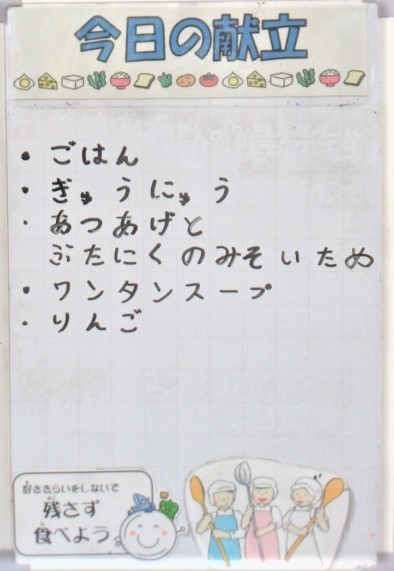 今日の献立
・ごはん
・ぎゅうにゅう
・あつあげと
ぶたにくのみそいため
・ワンタンスープ
・りんご
好ききらいをしないで
残さず
食べよう